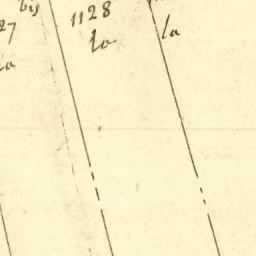 bis
1128
27
la
la